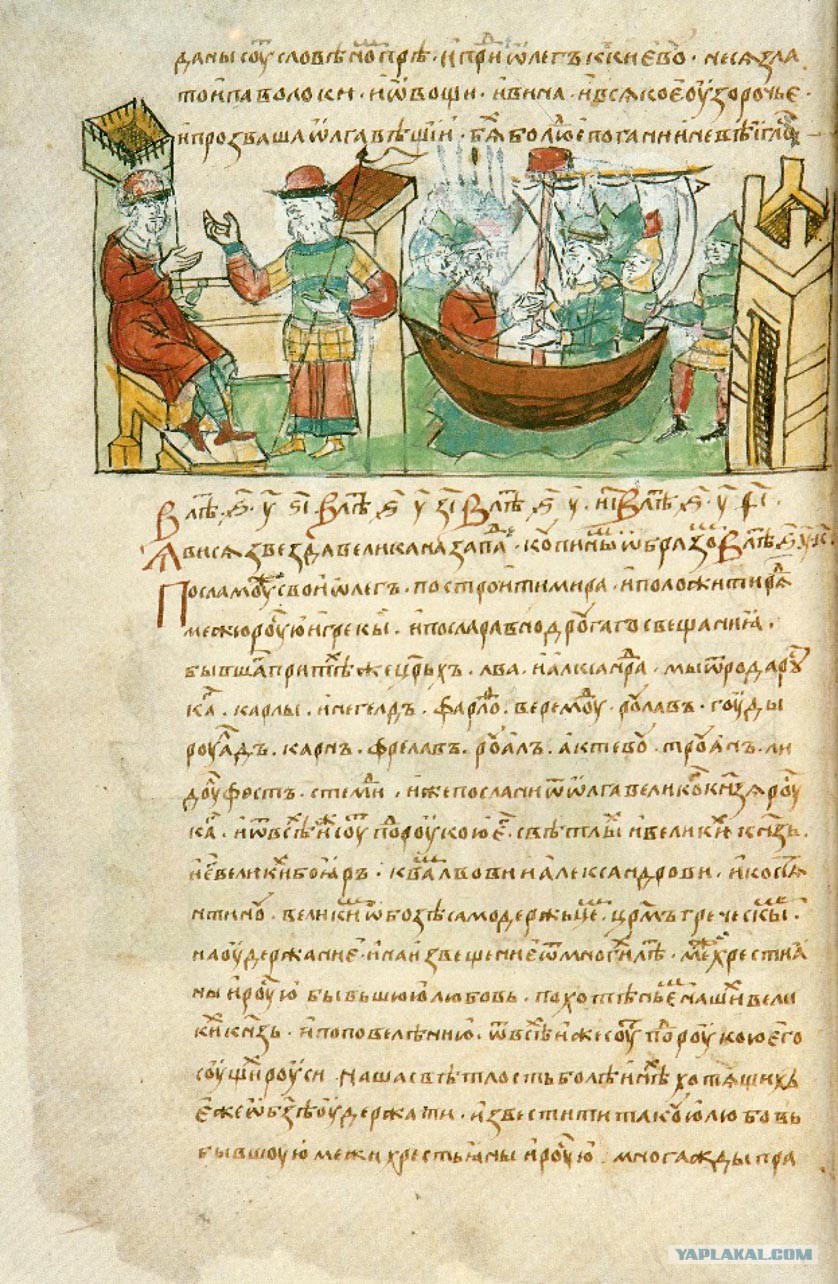 даны соуⷮ словѣноⷨ прѣ · и приⷣ ѡлегъ к киевоу · неся зла
то и паволоки · и ѡвощи · и вина · и всякое оузорочье ·
и прозваша ѡлга вѣщіи · бяⷯ бо люⷣе погани и невѣигло
В лѣⷮ · ҂ѕ҃ · у҃ · ѕ҃і В лѣⷮ ҂ѕ҃ у҃ з҃і В лѣⷮ ҂ѕ҃ у҃ · и҃і В лѣⷮ · ҂ѕ҃ · у҃ ѳ҃і ·
Явися звезда велика на запаⷣ · копиныⷨ ѡбразоⷨ В лѣⷮ ҂ѕ҃ у҃ к҃ ·
Посла моужⷤ свои ѡлегъ · построити мира · и положити ряⷣ
межю роусⷭю и греки · и посла равно дроугаго свещания ·
бывшаⷢ при тѣⷯже цр҃ьхъ · лва · и алкⷭсанⷣра · мы ѿ рода роуⷭ
каⷢ · карлы · инегелдъ · фарлоⷴ · веремоуⷣ · роулавъ · гоуды
роуалⷣъ · карнъ · фрелавъ · роуалъ · актевоу · троуанъ · ли
доулфостъ · стемиⷣ · иже послани ѿ ѡлга великоⷢ кн҃зя роуⷭ
каⷢ · и ѿ всѣⷯ иⷤ соуⷮ поⷣ роукою еⷢ · свѣтлыⷯ и великиⷯ кн҃зь ·
и еⷢ великиⷯ бояръ · к ваⷨ лвови и александрови · и костя
нтиноу · великиⷨ ѿ бозѣ самодержьцеⷨ · цр҃мъ греческыⷨ ·
на оудержание · и на извещение ѿ многиⷯ лѣⷮ · межⷤ хрестиа
ны и роусⷭю бывьшюю любовь · похотѣньеⷨ нашиⷯ вели
киⷯ кн҃зь · и по повелѣнию · ѿ всѣⷯ иже соуⷮ поⷣ роукою его
соущиⷯ роуси наша свѣтлость болѣ инѣⷯ хотящихъ
еже ѡ бз҃ѣ оудержати · известити такоую любовь
бывшоую межи хрестьаны и роусⷭю · многажды пра
YAPLAKAL.COM